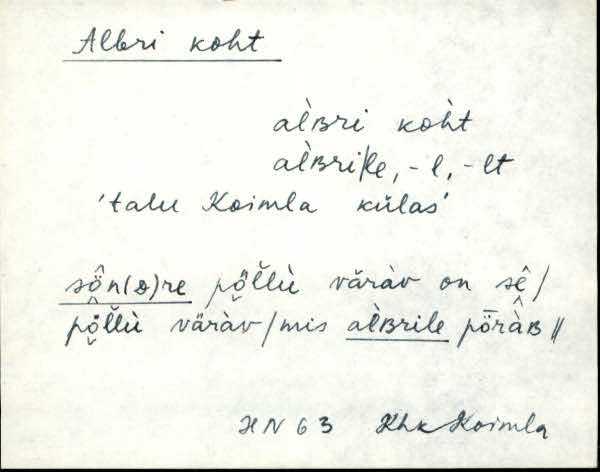 Albri koht
al̀ʙri koh̀t
al̀ʙri/le, -l, -lt
'talu Koimla külas'
sö̂n(ᴅ)re pö̭̂l̆l̆ù väràv on sê/
pö̭̂l̆l̆ù väràv/mis al̀ʙrile pȫrâʙ //
HN 63 Khk Koimla